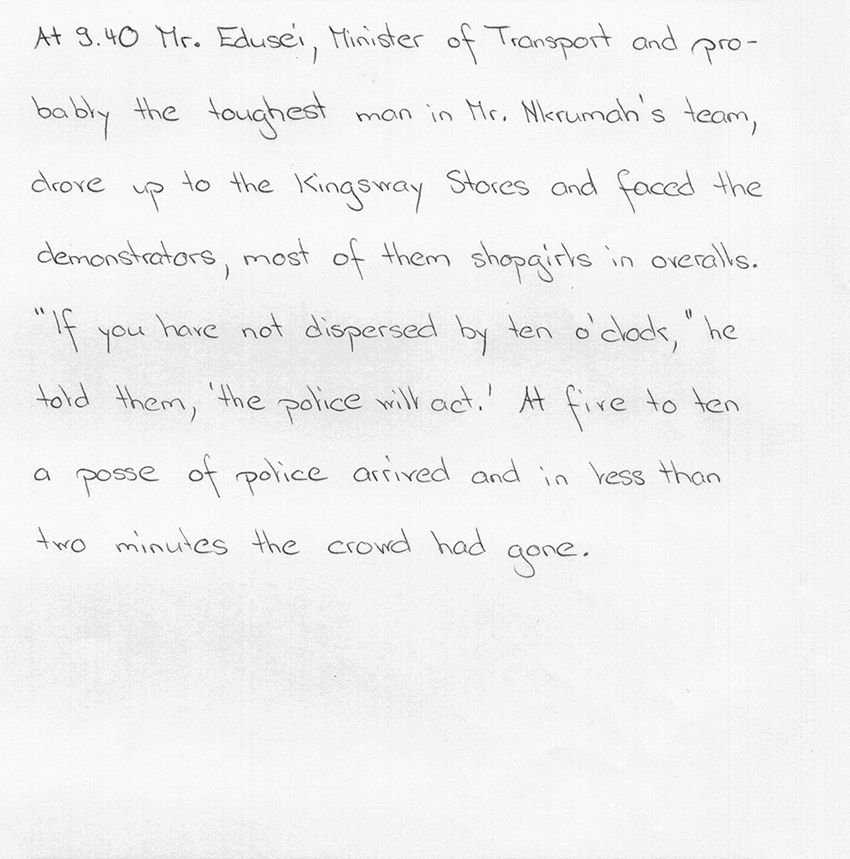 At 9.40 Mr. Edusei, Minister of Transport and pro-
bably the toughest man in Mr. Nkrumah's team,
drove up to the Kingsway Stores and faced the
demonstrators, most of them shopgirls in overalls.
"If you have not dispersed by ten o'clock," he
told them, 'the police will act.' At five to ten
a posse of police arrived and in less than
two minutes the crowd had gone.